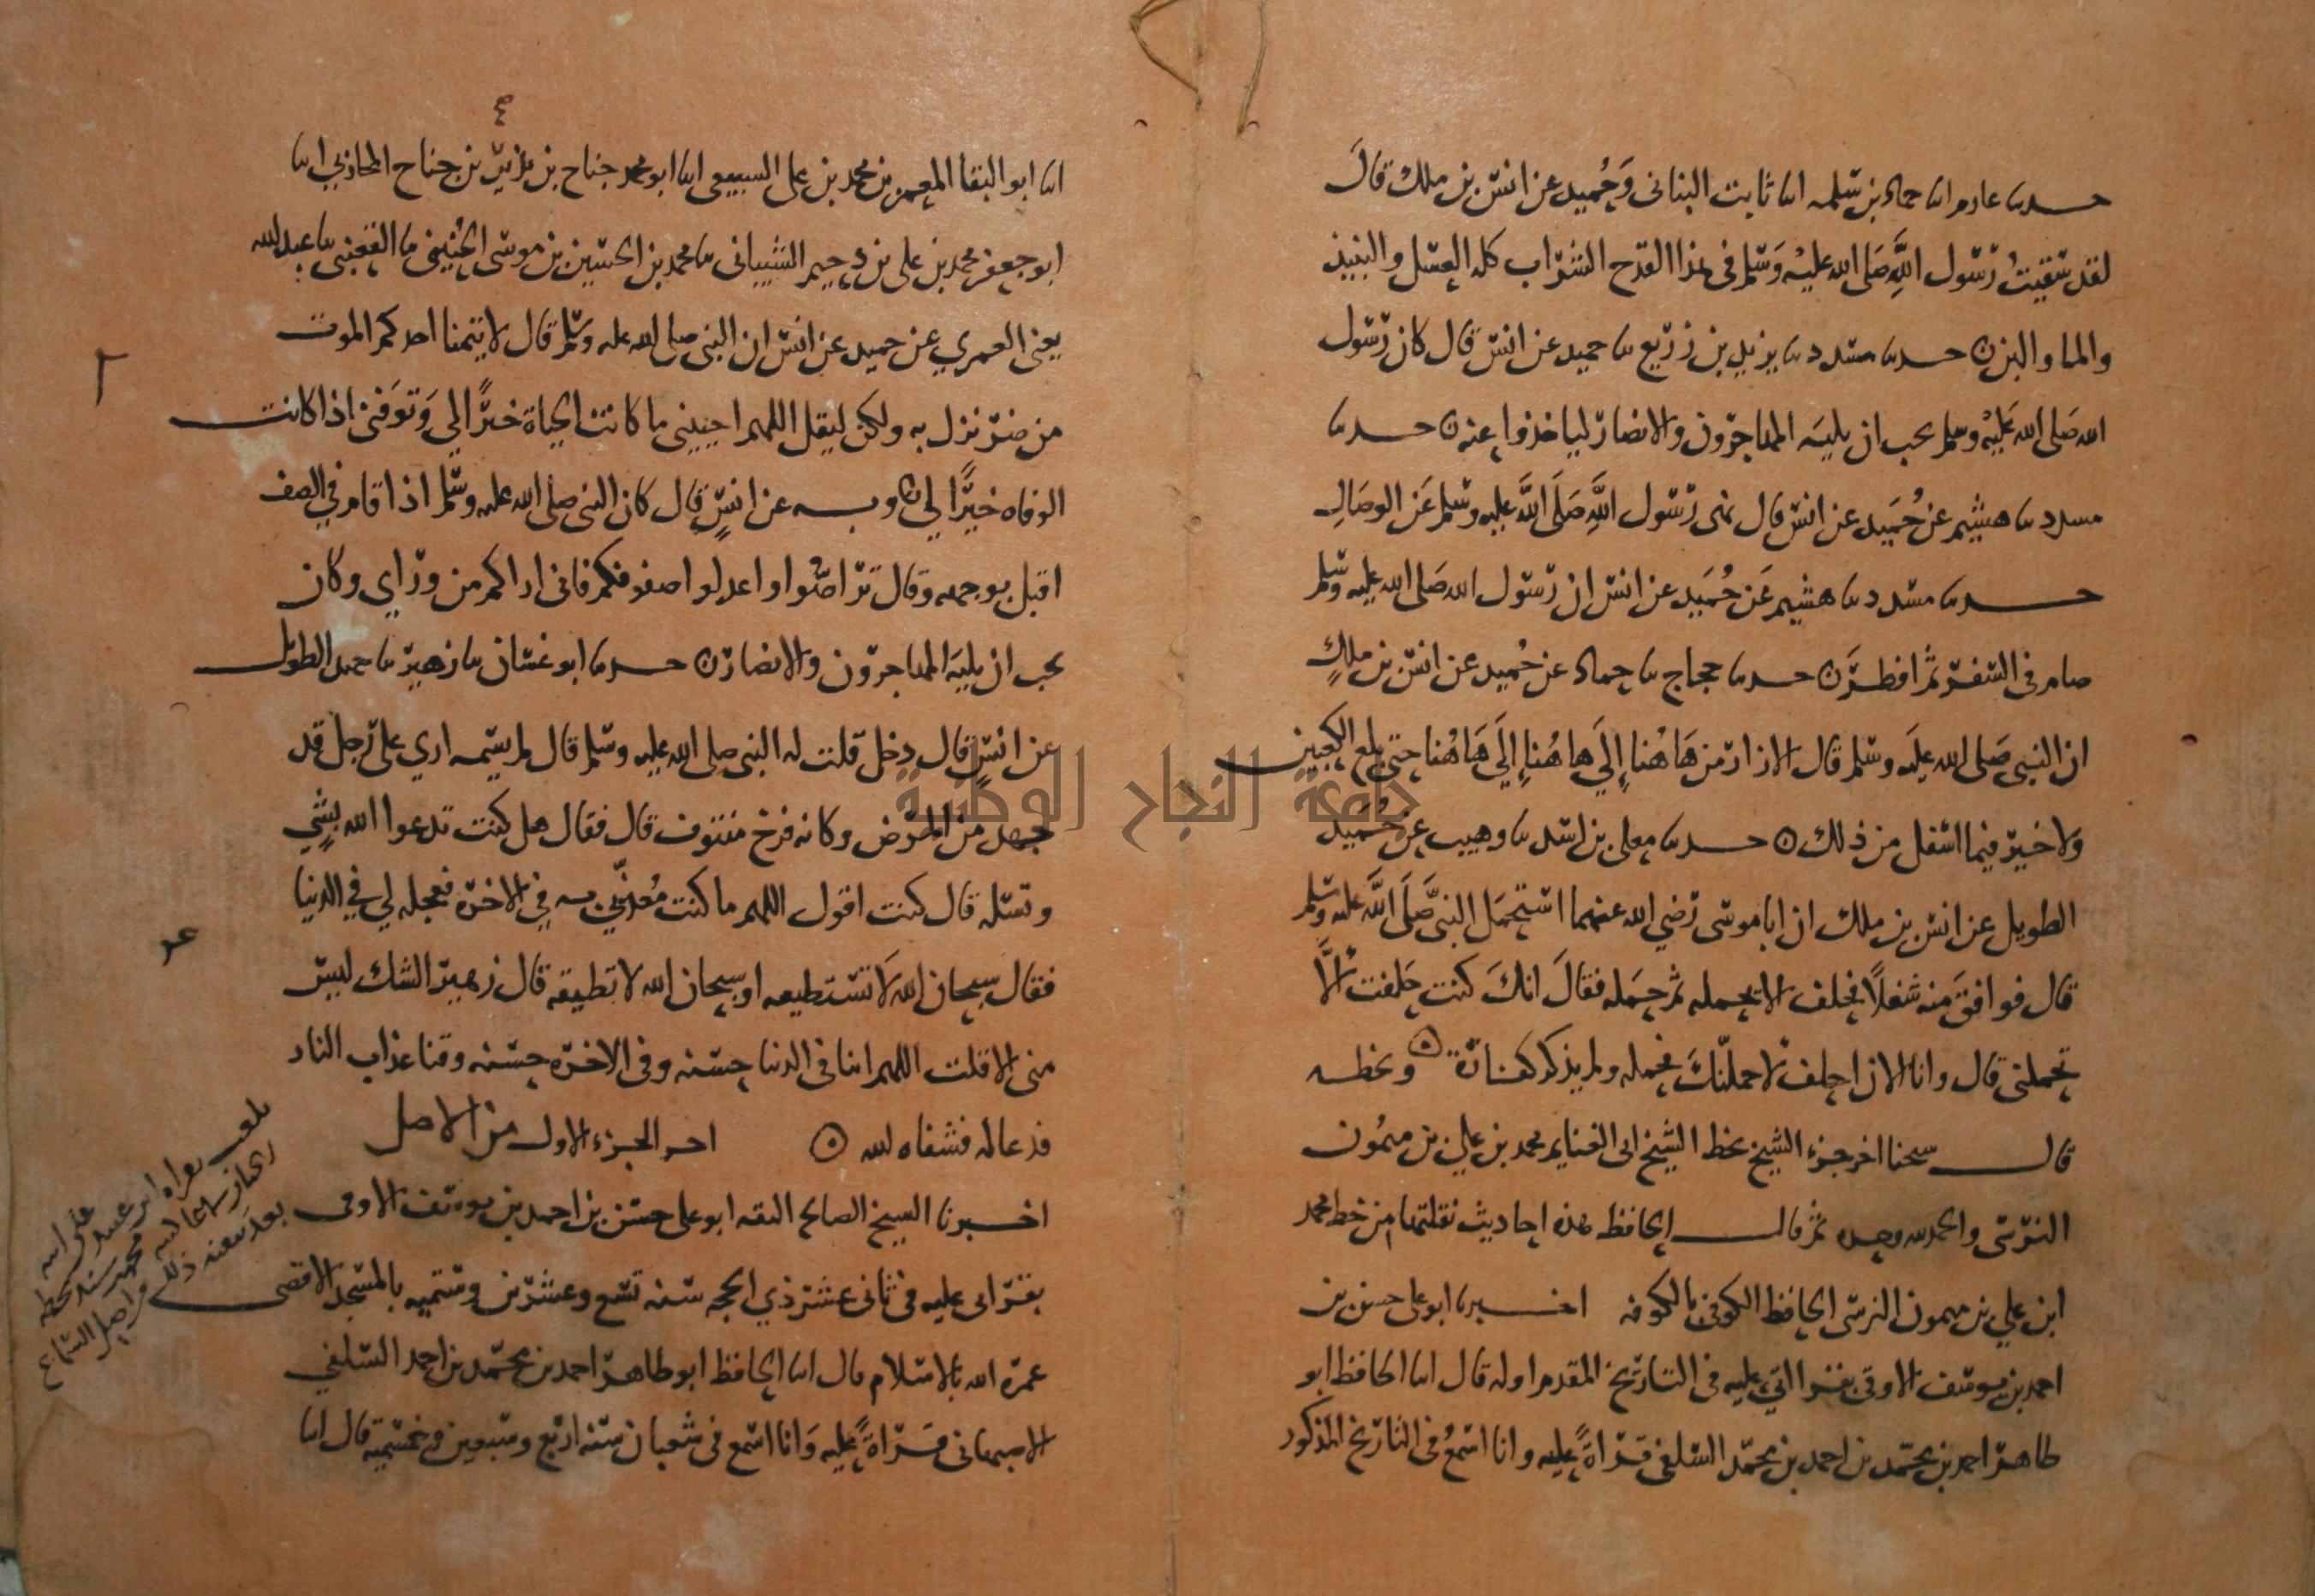 حدثنا عارم انا حماد بن سلمه انا ثابت البنانى وَحُميد عن انس بن ملك قالَ
لقد سَقيتُ رَسُول اللَّهِ صَلى الله عليْه وَسَلم فى هذا القدح الشراب كله العسل والنبيذ
والما واللبن ه حدثنا مسدد ثنا يزيد بن زريع ثنا حميد عن انس قال كان رَسُول
الله صَلى الله عَليْه وسلم يحب ان يليَه المهاجرون والانصار لياخذوا عنه ه حدثنا
مسدد ثنا هشيم عن حُمَيد عن انس قال نهى رَسُول اللَّهِ صَلَى اللَّه عليه وسَلم عَن الوصَالِ
حدثنا مسدد ثنا هشيم عَن حُمَيد عن انس ان رَسُول الله صَلى الله عليه وسَلم
صام فى السَفر ثم افطرَ ه حدثنا حجاج ثنا حماد عن حُميد عن انس بن ملكٍ
ان النبى صَلى الله عليَه وسلم قال الازار من هَا هُنا إِلَي ها هُنا إِلَي هَا هُنا حتى بلغ الكعبين
ولا خيرَ فيما اسفل من ذلك ه حدثنا معلى بن اسد ثنا وهيب عن حُمَيد
الطويل عن انس بن ملك ان ابا موسى رَضي الله عنهما استحمَل النبَّى صَلَى اللَّه عليه وسَلم
قال فوافقَ منه شغلاً فحلف الا يحمله ثم حَمله فقالَ انكَ كنت حَلفت ألاَّ
تحملنى قال وانا الان احلف لاحملنّكَ فحمله ولم يذكر كفارَة ه وبخطه
قال شيخنا اخر جزء الشيخ بخط الشيخ ابى الغنايم محمد بن علي بن ميمُون
النرسَى والحمد لله وحده ثم قال الحافظ هذه احاديث نقلتها من خط محمد
ابن علي بن ميمون النرسَى الحافظ الكوفى بالكوفه اخبرنا ابو على حسن بن
احمد بن يوسف الاوقى بقراتى عليه فى التاريخ المقدم اوله قال انا الحافظ ابو
طاهر احمد بن محمّد بن احمد بن محمّد السلفى قراةً عليه وانا اسمعُ فى التاريخ المذكور
٤
انا ابو البقا المعمر بن محمد بن على السبيعى انا ابو محمد جناح بن نذير بن جناح المحاربي انا
ابو جعفر محمد بن على بن دحيم الشيبانى ثنا محمد بن الحسين بن موسى الحُنينى نا القعنبى ثنا عبد الله
يعنى العمري عن حميد عن انس ان النبى صلى الله عليه وسَلم قال لا يتمنا احدكم الموت
من ضر نزل به ولكن ليقل اللهم احيينى ما كانت الحياة خيرًا لي وَتوَفنى اذا كانت
الوفاه خيرًا لي ه وبه عن انسٍ قال كان النبى صلى الله عليه وسَلم اذا قام في الصف
اقبل بوجهه وقال تراصُّوا واعدلوا صفوفكم فانى اراكم من ورَاي وكان
يحب ان يليَه المهاجرون والانصار ه حدثنا ابو غسان ثنا زهير ثنا حميد الطويل
عن انسٍ قال دخل قلت له النبى صلى الله عليه وسَلم قال لم يسمه اري على رَجل قد
جهد من المرَض وكانه فرخ منتوف قال فقال هل كنت تدعوا الله بشي
وتسله قال كنت اقول اللهم ما كنت مُعذّبي به في الاخرَة فعجله لي في الدنيا
فقال سبحان الله لَا تستطيعه او سبحان الله لا تطيقه قال زهير الشك ليس
منى الا قلت اللهم اتنا فى الدنيا حسَنه وفى الاخرَه حسَنه وقنا عذاب النار
فدعا له فشفاه الله ه اخر الجزء الاول من الاصل
اخبرنا الشيخ الصالح الثقه ابو على حسَن بن احمد بن يوسَف الاوقى
بقراتى عليه فى ثانى عشر ذي الحجه سَنه تسَع وعشرين وستميه بالمسَجد الاقصى
عمرَه الله بالاسَلام قال انا الحافظ ابو طاهر احمد بن محمّد بن احمد السَلفي
الاصبهانى قرَاةً عليه وَانا اسَمع فى شعبان سَنه اربَع وسَبعين وخمسَميه قال انا